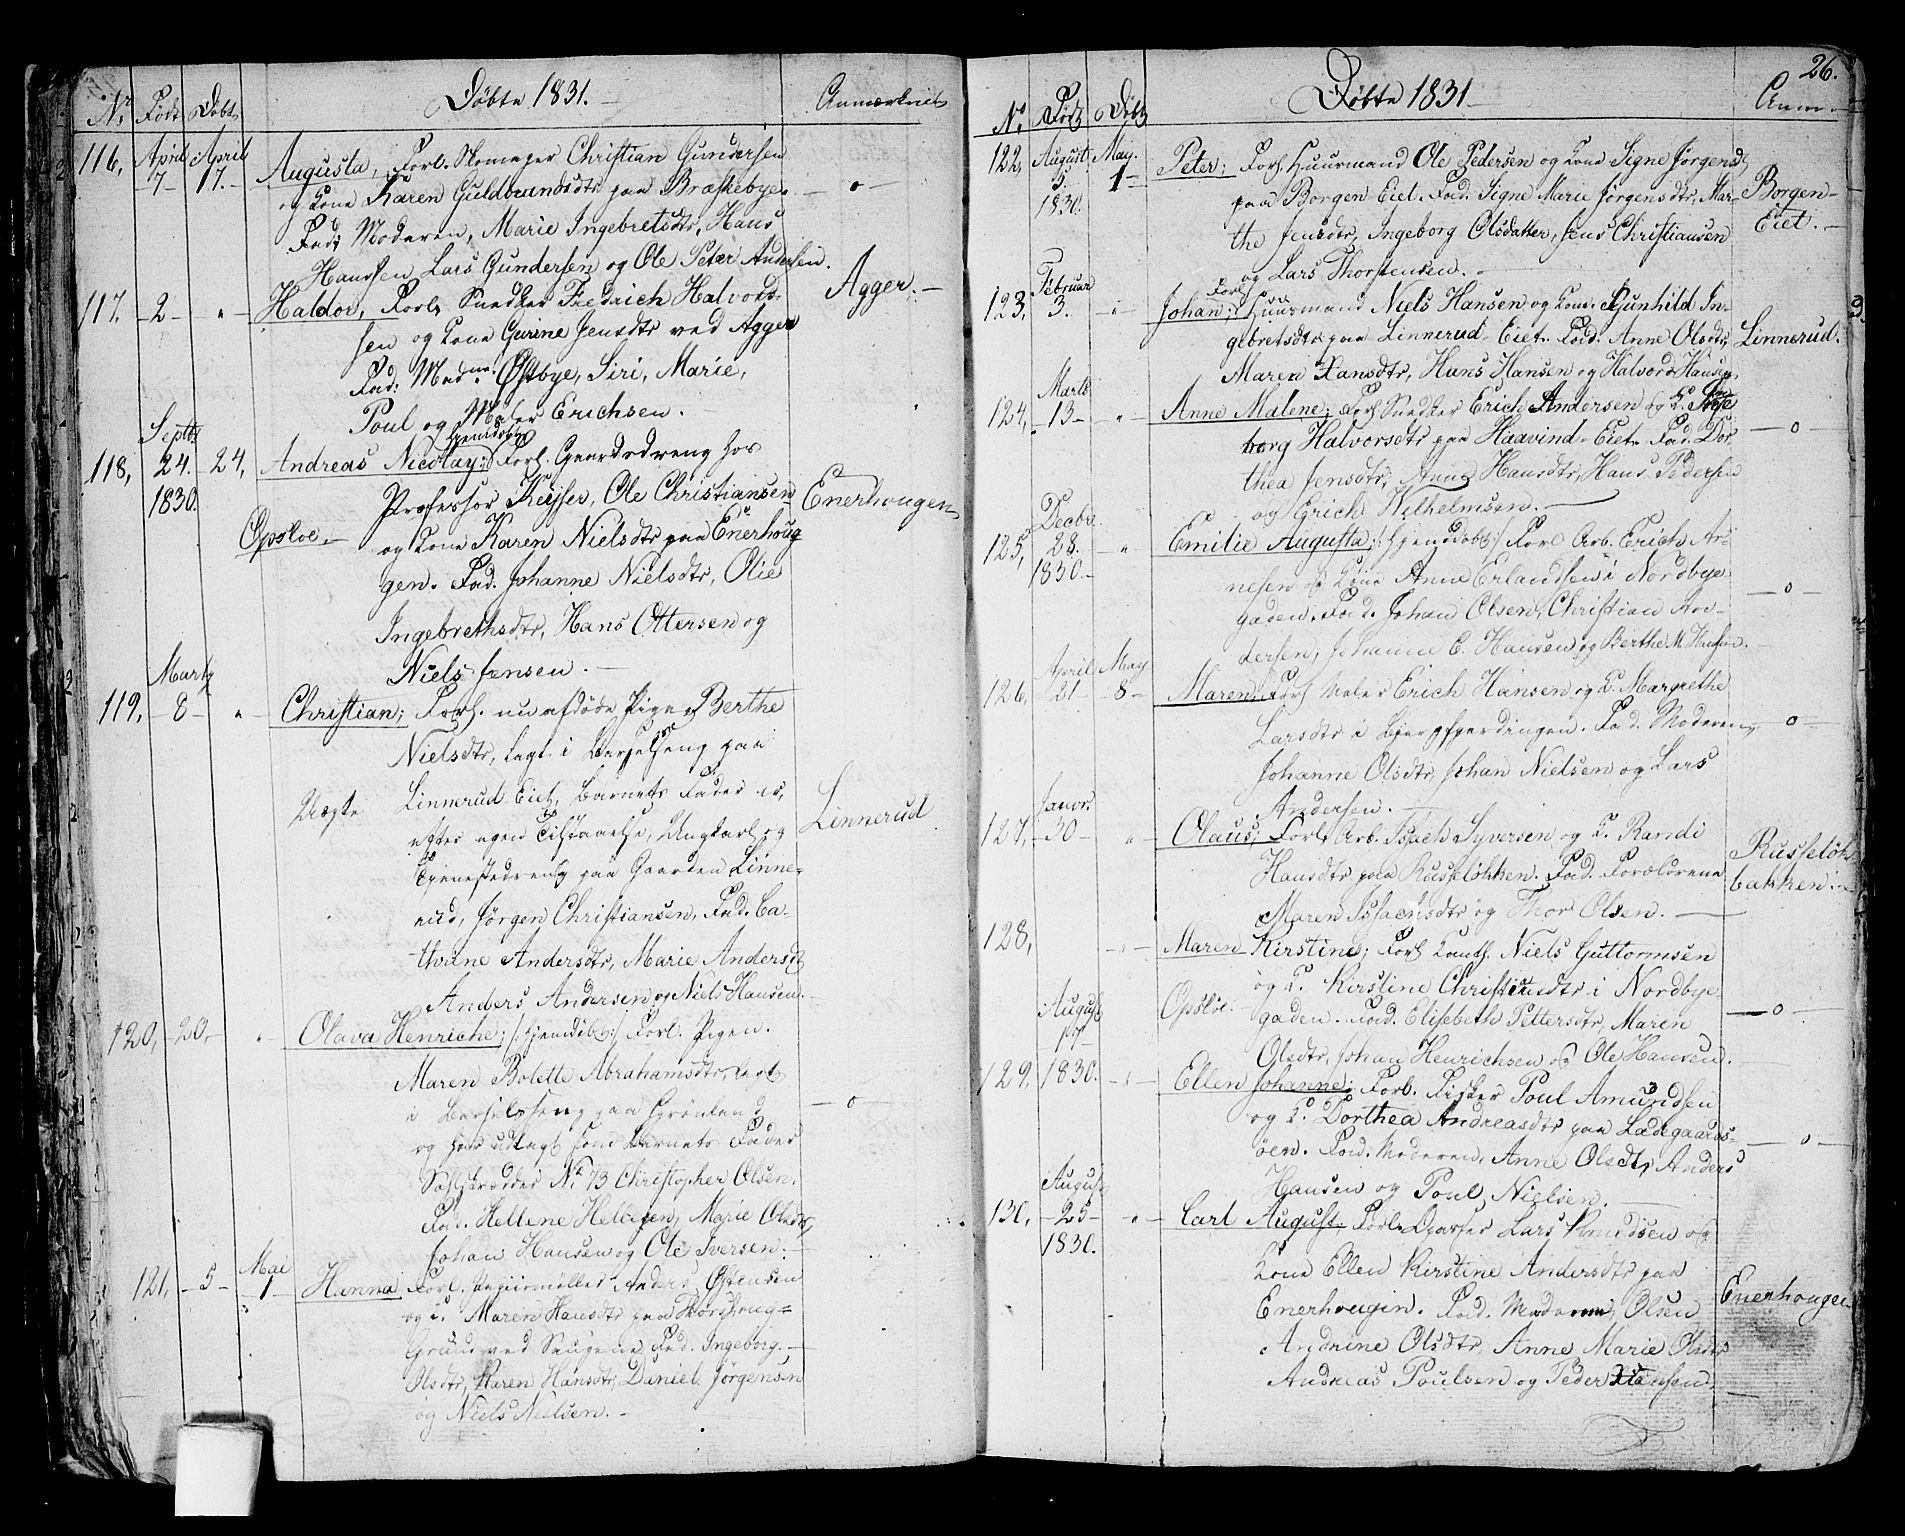 Nr. Født Døbt Døbte 1831. Anmærkning
116, April 7 April 17. Augusta, Forl. Skomager Christian Gundersen
og Kone Karen Guldbrandsdtr paa Brækkebye. — o —
Fad: Moderen, Marie Ingebretsdtr, Hans
Hanssen, Lars Gundersen og Ole Peter Andersen.
117. 2 — " Haldor, Forl. Snedker Fredrich Halvord- Agger. —
sen og Kone Gurine Jensdtr ved Agger
Fad: Madme Østbye, Siri, Marie,
Poul og Maler Erichsen. —
118, Septbr 24. 1830. 24, Andreas Nicolay; hjemdøbt Forl. Gaardsdreng hos
Professor Keyser, Ole Christiansen Enerhougen
Opsloe. — og Kone Karen Nielsdtr paa Enerhoug
gen. Fad. Johanne Nielsdtr, Olie
Ingebrethsdtr, Hans Ottersen og
Niels Jensen. —
119, Marty 8 — " Christian; Forl. nu afdøde Pige Berthe
Nielsdtr, lagt i Barselseng paa
Uægte Linnerud Eiet, Barnets Fader er, Linnerud
efter egen Tilstaaelse, Ungkarl og
Tjenestedreng paa Gaarden Linne-
rud, Jørgen Christiansen, Fad. Ca-
thrine Andersdtr, Marie Andersdt
Anders Andersen og Niels Hansen.
120, 20, — " Olava Henriche; /: hjemdøbt :/ Forl. Pigen.
Maren Bolette Abrahamsdtr, lagt
i Barselseng paa Grønland — o —
og har udlagt som Barnets Fader
No 73 Christopher Olsen.
Fad. Hellene Helgesen, Marie Olsdtr,
Johan Hansen og Ole Iversen. —
121, 5 — Mai 1 — Hanna Forl. Papiirmøller Anders Østensen
og K. Maren Hansdtr paa
Grund ved Saugene Fad. Ingeborg
Olsdtr, Karen Hansdtr, Daniel Jørgensen
og Niels Nielsen. —
26.
No. Født Døbt Døbte 1831 Anm.
122, August 5. 1830. May. 1 — Peter; Forl. Huusmand Ole Pedersen og Kone Signe Jørgensd
paa Borgen Eiet. Fad. Signe Marie Jørgensdtr, Mar- Borgen-
the Jensdtr, Ingeborg Olsdatter, Jens Christiansen Eiet. —
og Lars Thorstensen. —
123, Februar 3. " Johan; Forl. Huusmand Niels Hansen og Kone Gunhild In-
gebretsdtr paa Linnerud Eiet. Fad. Anne Olsdtr, Linnerud.
Maren Hansdtr, Hans Hansen og Halvord Hansen
124, Marts 13 — " Anne Malene; Forl. Snedker Erich Andersen og K. Inge
borg Halvorsdtr paa Haavind-Eiet. Fad. Dor- — o —
thea Jensdtr, Anne Hansdtr, Hans Pedersen
og Erich Wilhelmsen. —
125, Decbr. 28. 1830. — " Emilie Augusta; /: hjemdøbt :/ Forl Arb. Erich Ar-
nesen og Kone Anne Erlandsen i Nordbye-
gaden. Fad. Johan Olsen, Christian An- — o —
dersen, Johanne E. Hansen og Berthe M. Hansen.
126, April 21 May 8 — Maren; Forl. Maler Erich Hansen og K. Margrethe
Larsdtr i Bjergfjerdingen. Fad. Moderen, — o —
Johanne Olsdtr, Johan Nielsen og Lars
Andersen. —
127, Januar 30 " Olaus; Forl. Arb. Isach Syversen og K. Randi
Hansdtr paa Russeløkken. Fad. Forældrene Russeløk-
Maren Issachsdtr og Thor Olsen. — bakken.
128, " Maren Kirstine; Forl. Niels Guttormsen
og K. Kirstine Christiansdtr i Nordbye-
Opsloe. gaden. Fad. Elisebeth Pettersdtr, Maren — o —
Olsdtr, Johan Henrichsen og Ole Hansen.
129, August 17 1830. " Ellen Johanne; Forl. Fisker Poul Amundsen
og K. Dorthea Andreasdtr paa Ladegaards-
øen. Fad. Moderen, Anne Olsdtr, Anders — o —
Hansen og Poul Nielsen. —
130, August 25 — 1830. " Carl August; Forl. Lars Knudsen og
Kone Ellen Kirstine Andersdtr paa
Enerhougin. Fad. Moderen, Olsen Enerhougen
Andrine Olsdtr, Anne Marie Olsdtr
Andreas Poulsen og Peder Hansen.